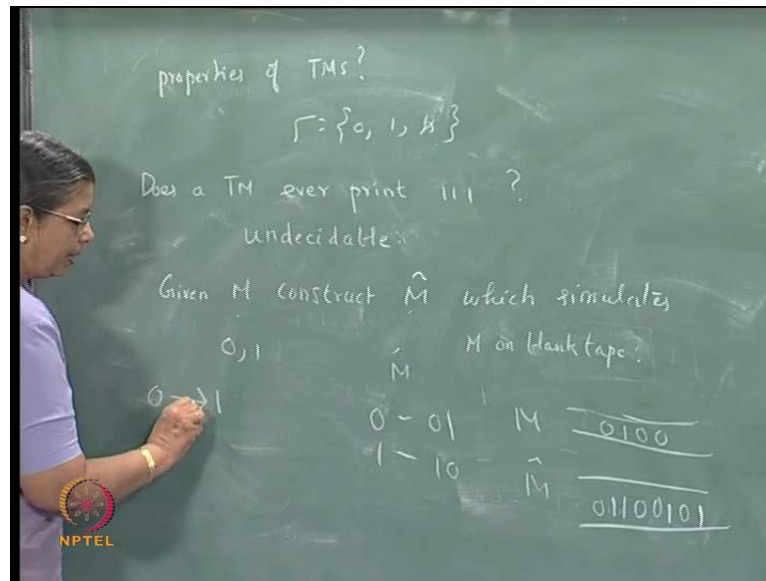 properties of TMs?
Γ = {0, 1, ƀ}
Does a TM ever print 111 ?
undecidable.
Given M construct M̂ which simulates
M on blank tape.
0, 1
M̂
0 → 1
0 - 01
1 - 10
M 0100
M̂ 01100101
NPTEL